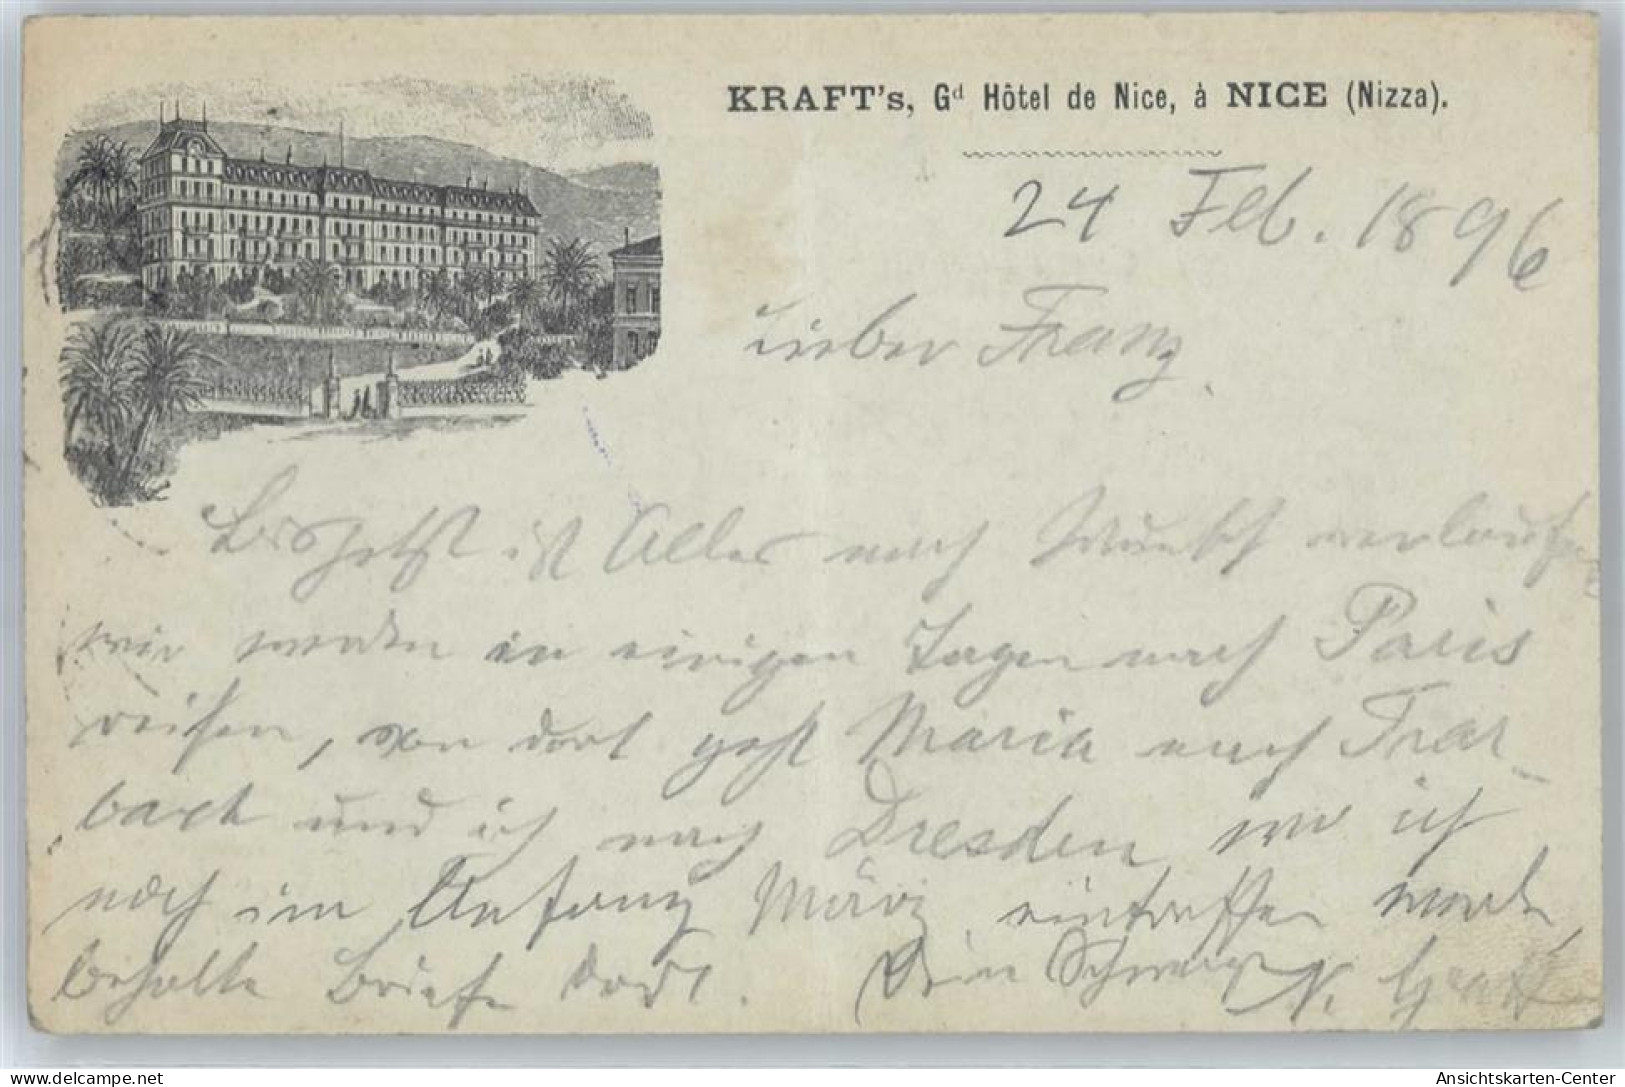 KRAFT's, Gd Hôtel de Nice, à NICE (Nizza).
24 Feb. 1896
Lieber Franz,
Bis jetzt ist Alles nach Wunsch verlaufen
wir werden in einigen Tagen nach Paris
reisen, von dort geht Maria nach Trar-
bach und ich nach Dresden, wo ich
noch im Anfang März eintreffen werde,
behalte Briefe dort. Dein Schwager N.
Ansichtskarten-Center
delcampe.net